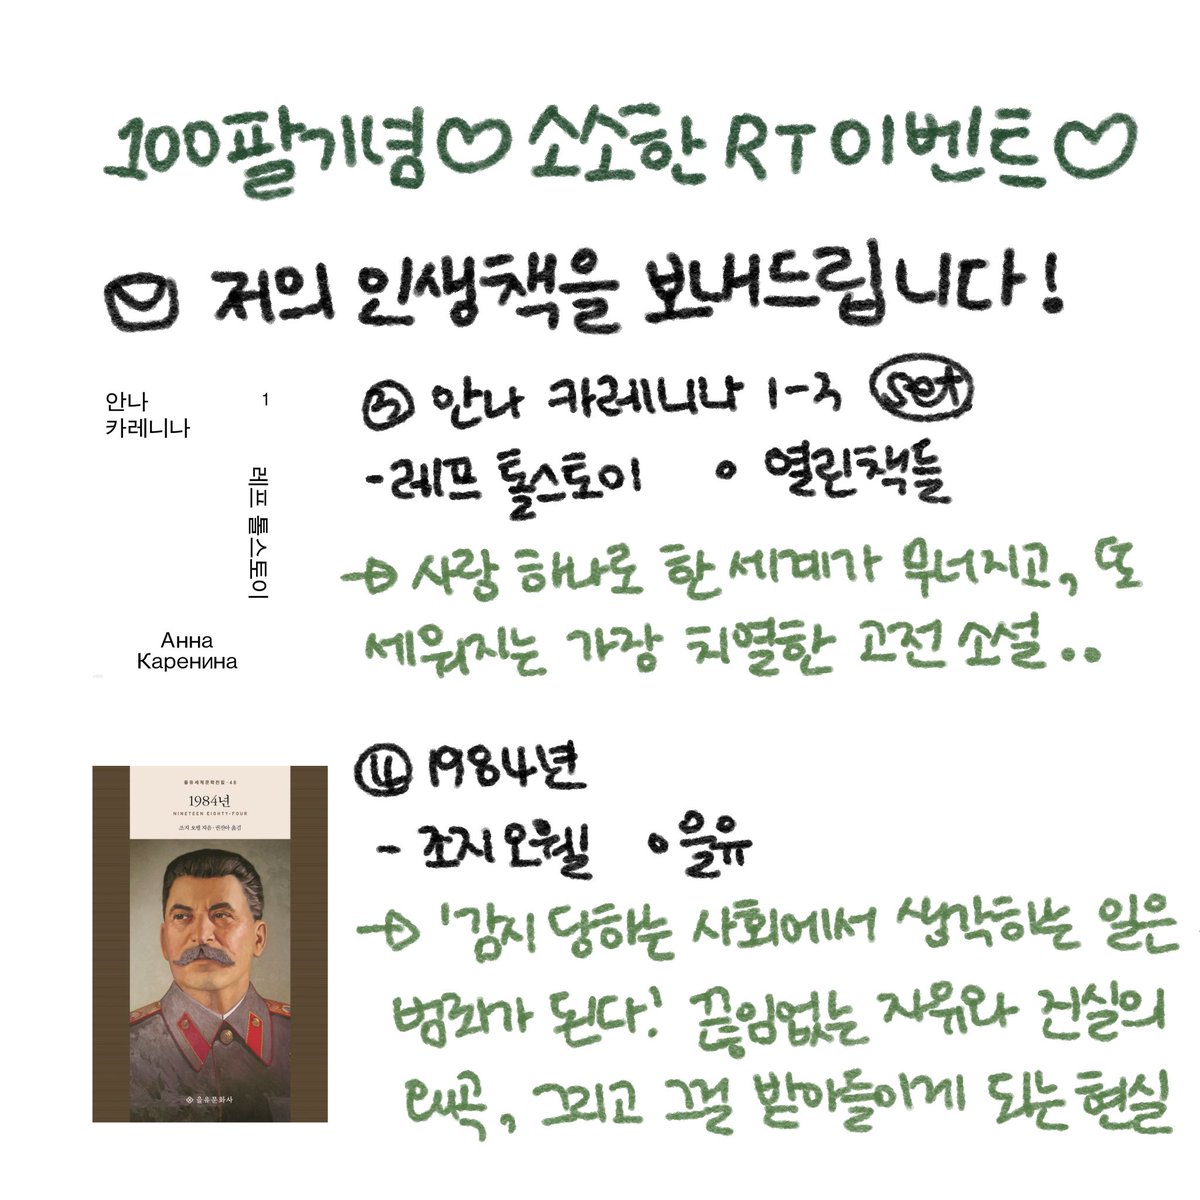 100팔기념♡ 소소한 RT 이벤트♡
저의 인생책을 보내드립니다!
안나 카레니나 1
레프 톨스토이
Анна
Каренина
③ 안나 카레니나 1-3 set
- 레프 톨스토이 ∘ 열린책들
→ 사랑 하나로 한 세계가 무너지고, 또
세워지는 가장 치열한 고전 소설..
을유세계문학전집·48
1984년
NINETEEN EIGHTY-FOUR
조지 오웰 지음·권진아 옮김
을유문화사
④ 1984년
- 조지 오웰 ∘ 을유
→ '감시 당하는 사회에서 생각하는 일은
범죄가 된다! 끊임없는 자유와 진실의
왜곡, 그리고 그걸 받아들이게 되는 현실